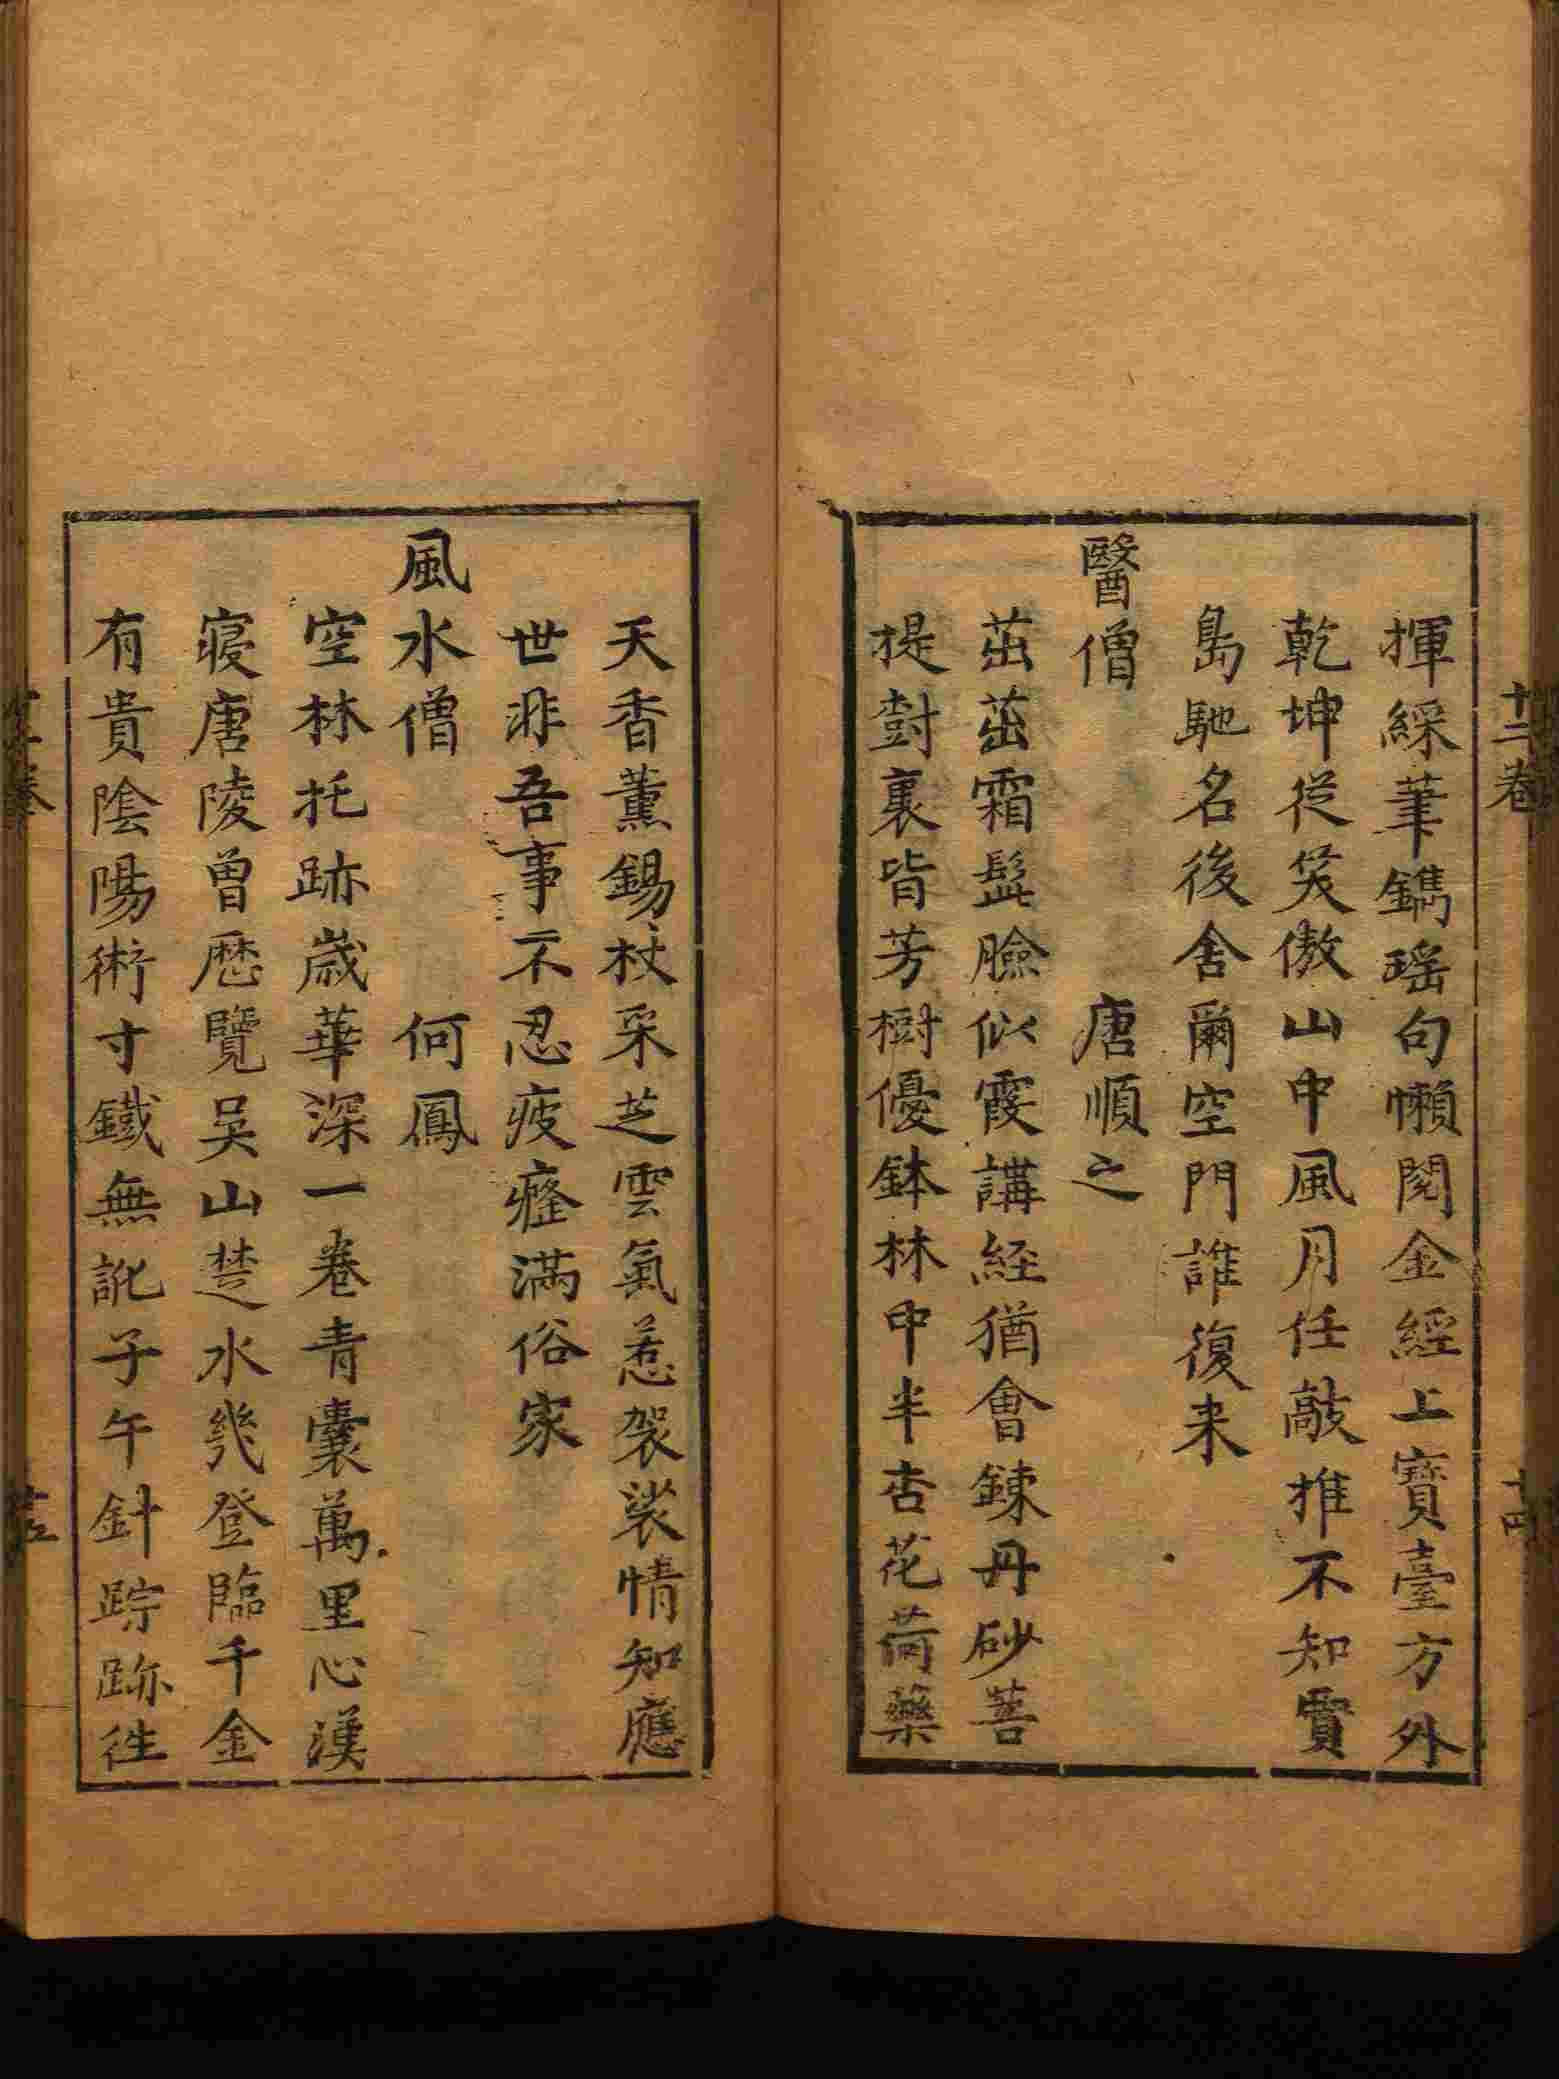 十二卷
揮綵筆鐫瑶句懶閱金經上寳臺方外
乾坤從笑傲山中風月任敲推不知賈
島馳名後舍爾空門誰復来
醫僧 唐順之
茁茁霜髭臉似霞講経猶會錬丹砂菩
提樹裏皆芳樹優鉢林中半杏花荷藥
十四
天香薰錫杖采芝雲氣惹袈裟情知應
世非吾事不忍疲癃滿俗家
風水僧 何鳳
空林托跡歲華深一卷青囊萬里心漢
寝唐陵曾歴覽吴山楚水幾登臨千金
有貴陰陽術寸鐵無訛子午針踪跡徃
十二卷
十五